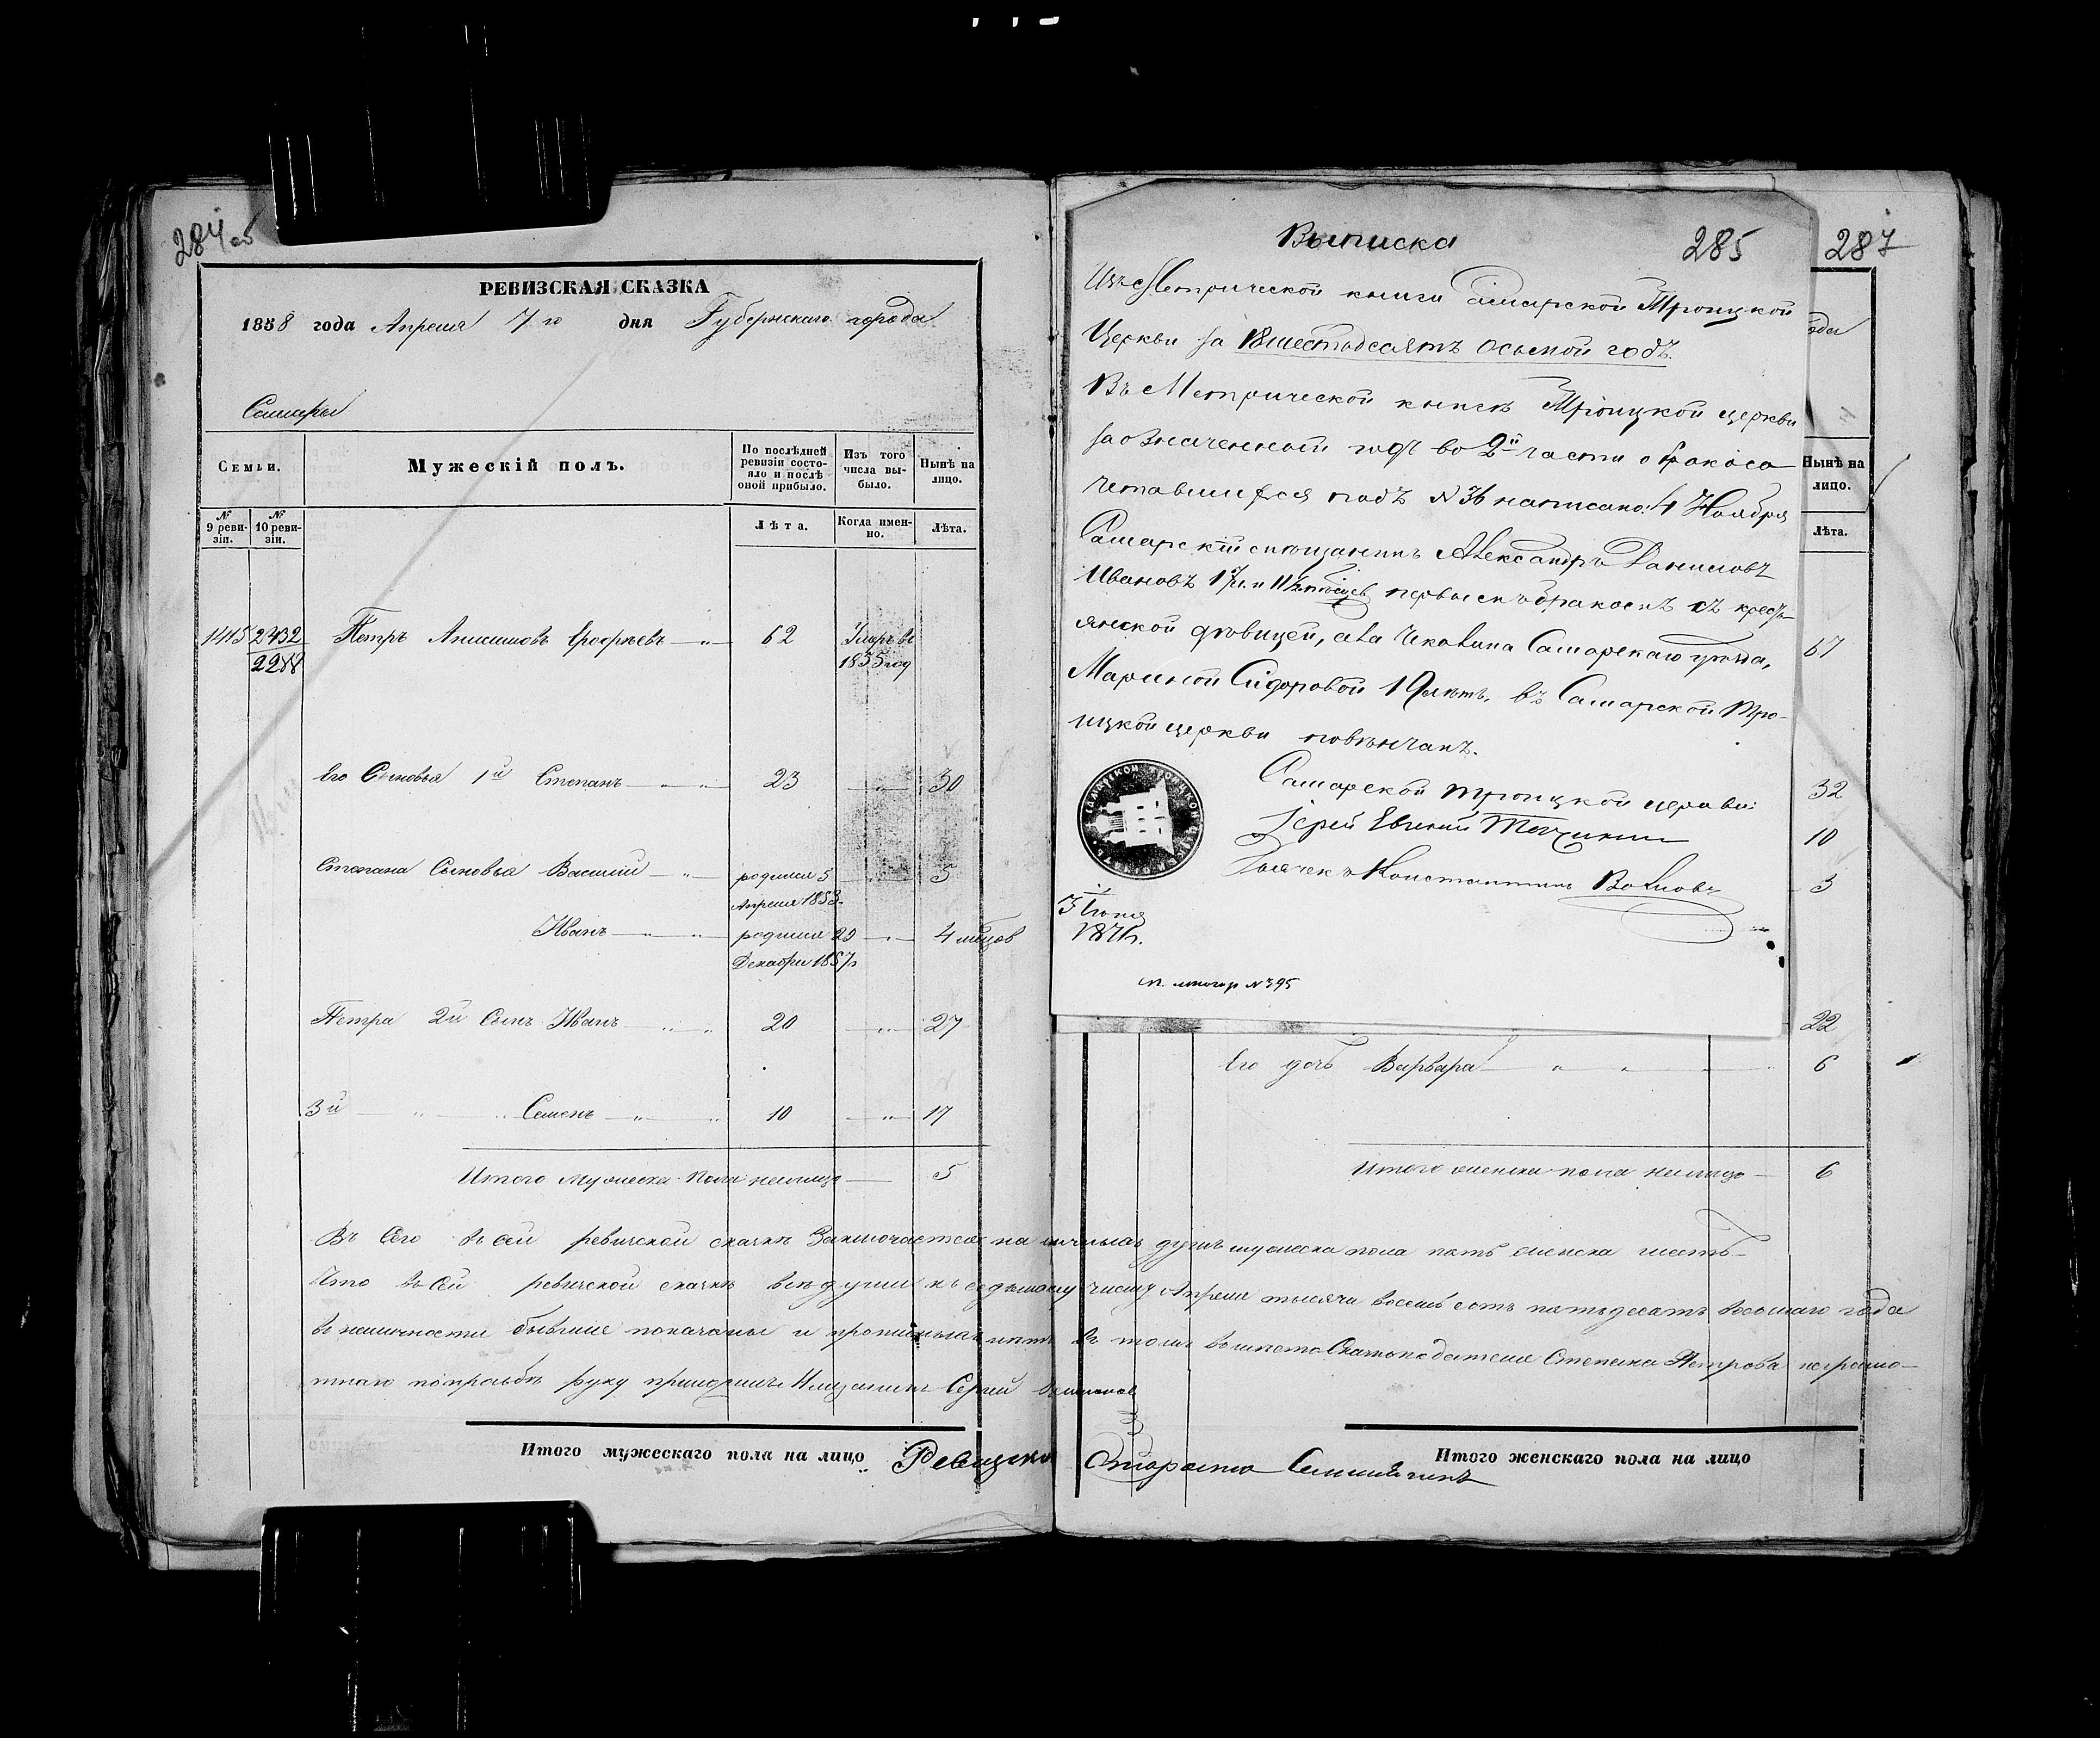 284 об
РЕВИЗСКАЯ СКАЗКА
1858 года Апреля 7го дня Губернскаго города
Самары
Семьи.
Мужескій полъ.
По послѣдней ревизіи состояло и послѣ оной прибыло.
Изъ того числа выбыло.
Нынѣ на лицо.
№ 9 ревизіи.
№ 10 ревизіи.
Лѣта.
Когда именно.
Лѣта.
1415 2432 Петръ Анисимовъ Ерофѣевъ 62 Умръ въ
1855 год
Его Сыновья 1й Степанъ 23 30
Степана Сыновья Василий родился 5 5
Апреля 1853
Иванъ родился 29 4 мѣсцов
Декабря 1857г
Петра 2й Сынъ Иванъ 20 27
3й Семенъ 10 17
Итого мужеска пола налицо 5
Итого мужескаго пола на лицо
Выписка
285
Изъ Метрической книги Самарской Троицкой
Церкви за 18шестьдесятъ осьмой годъ.
Въ Метрической книгѣ Троицкой церкви
за означенный годъ во 2й части о бракосо
четавшихся подъ № 36 написано: 4 Ноября
Самарскій мѣщанинъ Александръ Даниловъ
Ивановъ первымъ бракомъ съ кресть-
янской дѣвицей, села Самарскаго уѣзда,
Мариной Сидоровой 19 лѣтъ, въ Самарской Тро-
ицкой церкви повѣнчанъ.
Самарской Троицкой церкви:
Іерей Евгений
Константинъ
287
ода
Нынѣ на лицо.
Лѣта.
32
10
3
22
Его дочь Варвара 6
Итого женска пола налицо 6
Въ Сего въ сей ревизской сказкѣ Заключается на личныхъ душъ мужеска пола пять женска шесть
Что въ сей ревизской сказкѣ всѣ души къ седьмому числу Апреля тысяча восемь сотъ пятьдесятъ восьмаго года
въ наличности бывшие показаны и прописныхъ нѣтъ въ томъ вместо Сказкоподателя Степана Петрова неграмо-
тнаго по прозьбѣ руку приложилъ Мѣщанинъ Сергей
Ревизский Староста
Итого женскаго пола на лицо